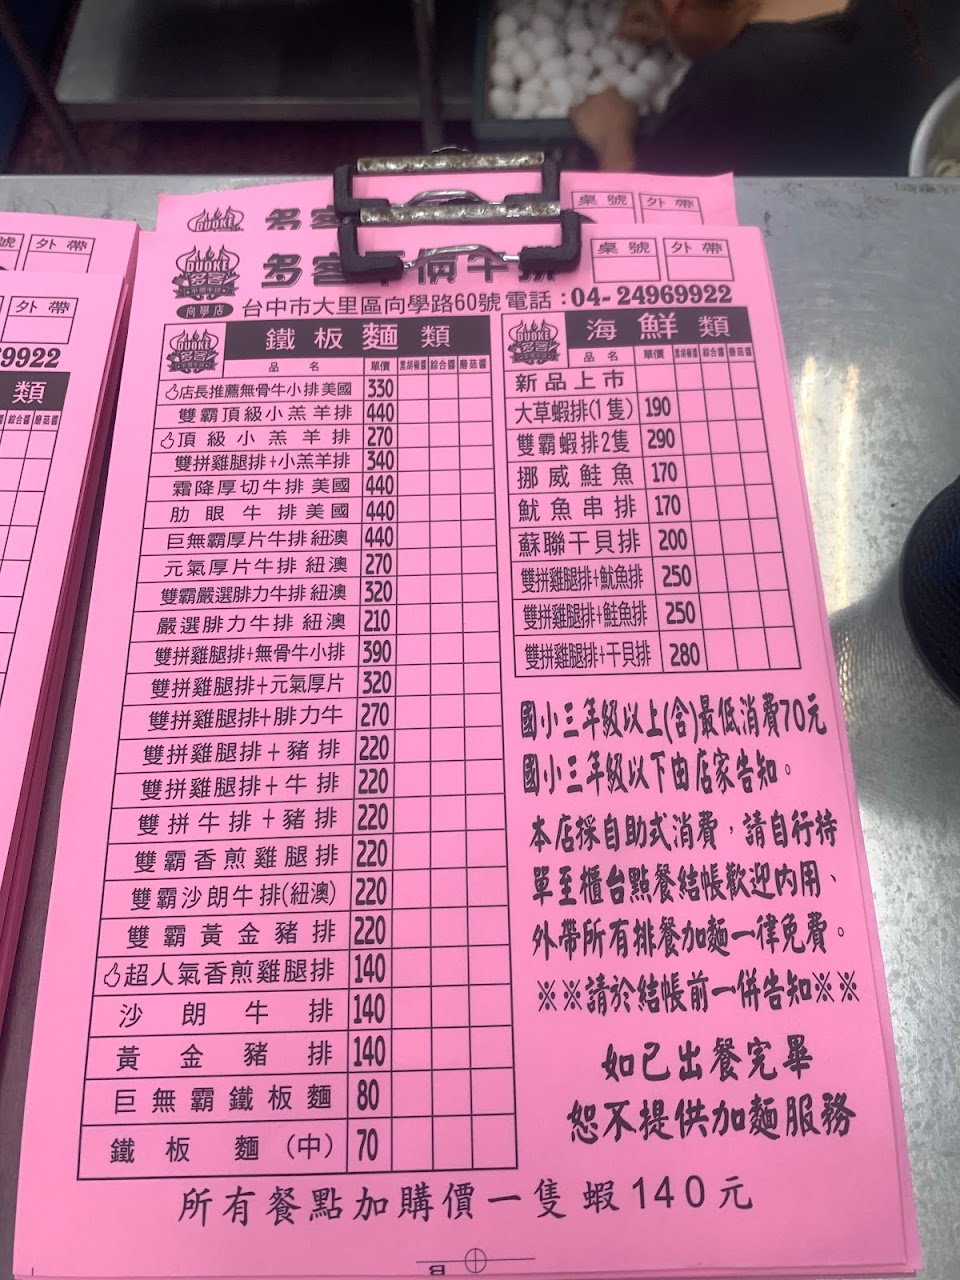 桌號 外帶
DUOKE
多客
桌號 外帶
DUOKE
多客
平價牛排
多客平價牛排
向學店
台中市大里區向學路60號 電話:04-24969922
鐵板麵類
品名 單價 黑胡椒醬 綜合醬 蘑菇醬
店長推薦無骨牛小排美國 330
雙霸頂級小羔羊排 440
頂級小羔羊排 270
雙拼雞腿排+小羔羊排 340
霜降厚切牛排美國 440
肋眼牛排美國 440
巨無霸厚片牛排紐澳 440
元氣厚片牛排紐澳 270
雙霸嚴選腓力牛排紐澳 320
嚴選腓力牛排紐澳 210
雙拼雞腿排+無骨牛小排 390
雙拼雞腿排+元氣厚片 320
雙拼雞腿排+腓力牛 270
雙拼雞腿排+豬排 220
雙拼雞腿排+牛排 220
雙拼牛排+豬排 220
雙霸香煎雞腿排 220
雙霸沙朗牛排(紐澳) 220
雙霸黃金豬排 220
超人氣香煎雞腿排 140
沙朗牛排 140
黃金豬排 140
巨無霸鐵板麵 80
鐵板麵(中) 70
DUOKE
多客
海鮮類
品名 單價 黑胡椒醬 綜合醬 蘑菇醬
新品上市
大草蝦排(1隻) 190
雙霸蝦排2隻 290
挪威鮭魚 170
魷魚串排 170
蘇聯干貝排 200
雙拼雞腿排+魷魚排 250
雙拼雞腿排+鮭魚排 250
雙拼雞腿排+干貝排 280
國小三年級以上(含)最低消費70元
國小三年級以下由店家告知。
本店採自助式消費,請自行持
單至櫃台點餐結帳歡迎內用、
外帶所有排餐加麵一律免費。
※※請於結帳前一併告知※※
如已出餐完畢
恕不提供加麵服務
所有餐點加購價一隻蝦140元
B
號 外帶
外帶
69922
類
綜合醬 蘑菇醬